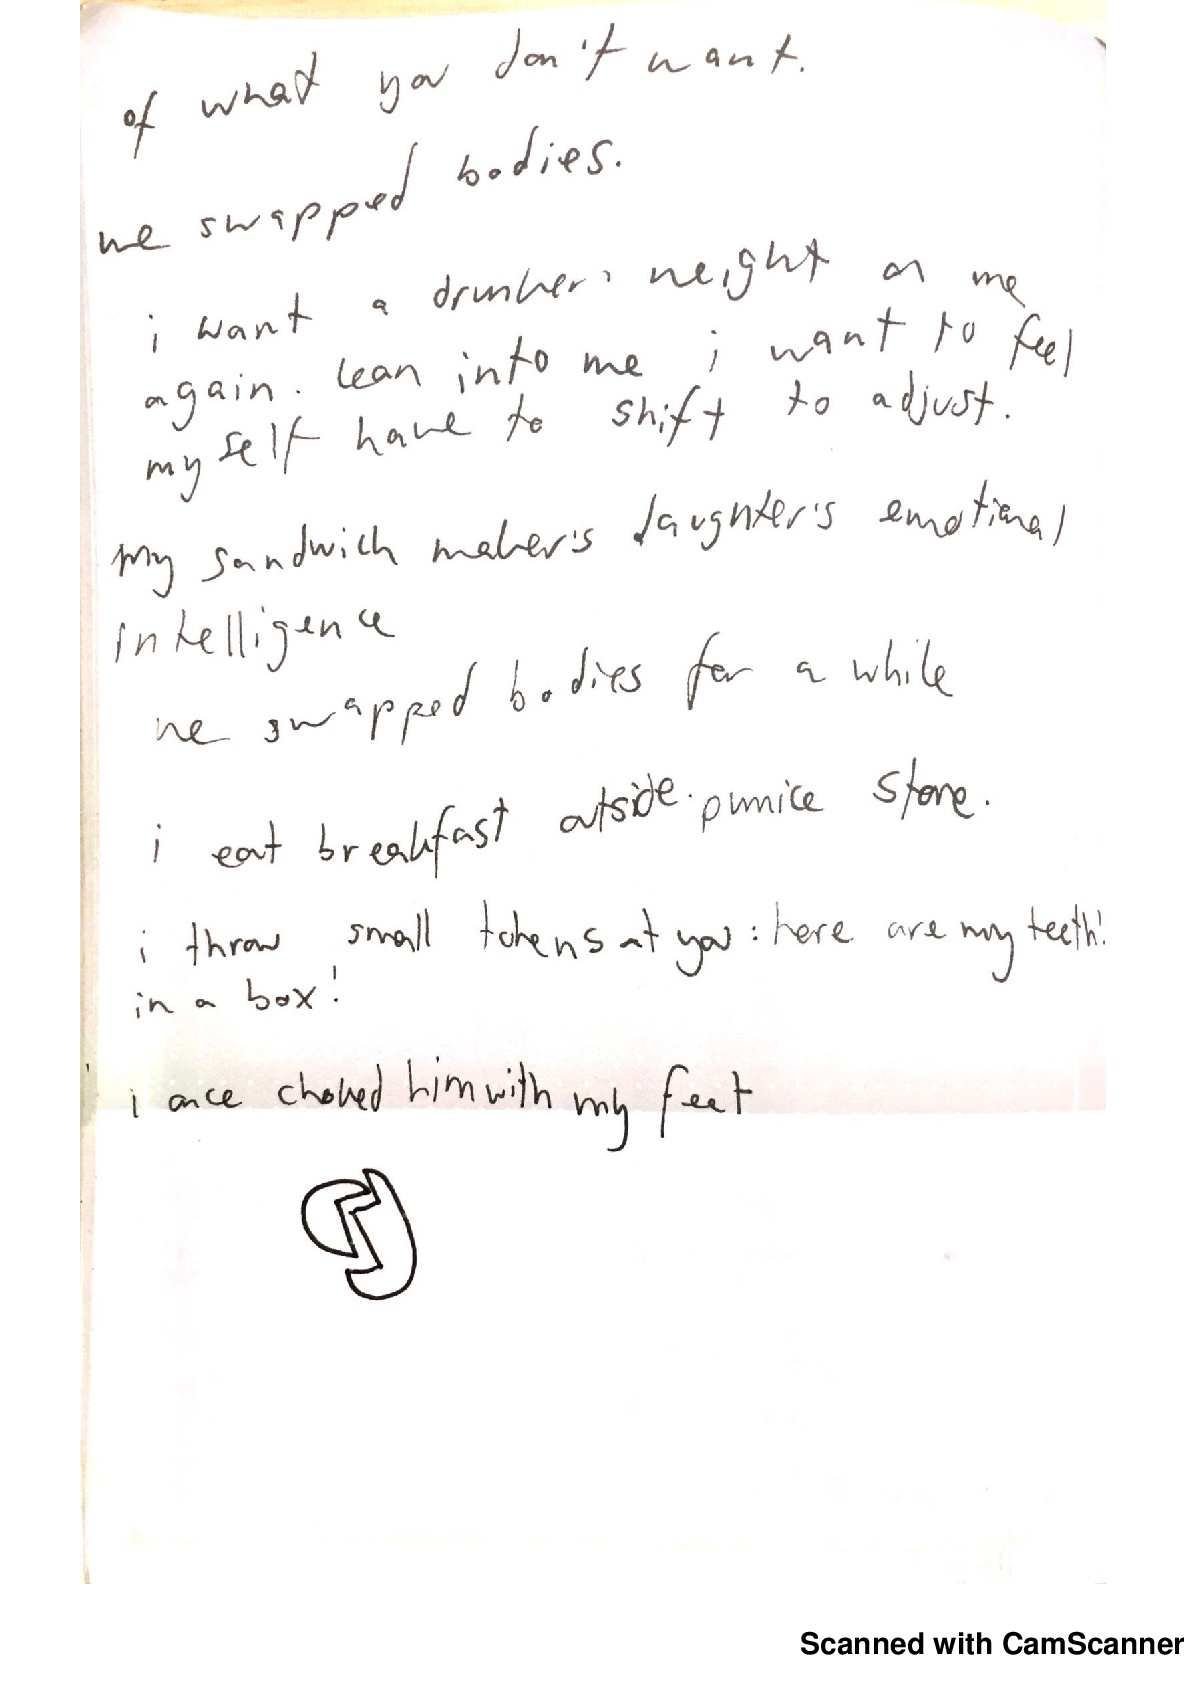 of what you don't want.
we swapped bodies.
i want a drunker, weight on me
again. lean into me i want to feel
myself have to shift to adjust.
my sandwich maker's daughter's emotional
intelligence
we swapped bodies for a while
i eat breakfast outside. pumice stone.
i throw small tokens at you: here are my teeth!
in a box!
i once choked him with my feet
Scanned with CamScanner